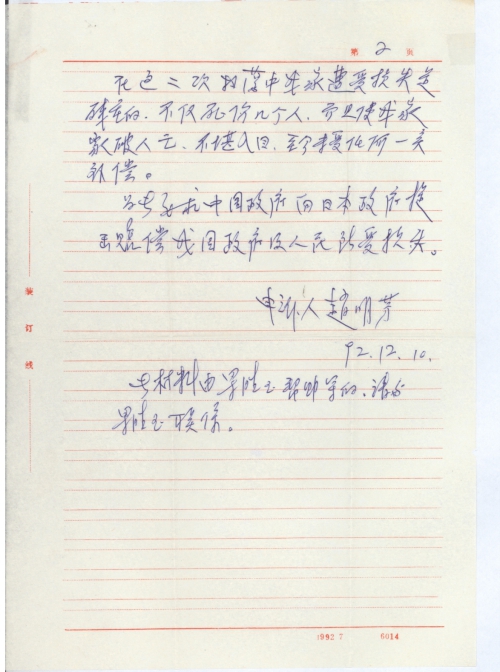 第 2 页
在这二次扫荡中我家遭受损失是
碎重的，不仅死伤几个人，而且使我家
家破人亡，不堪入目，至今未受任何一点
补偿。
为此委托中国政府向日本政府提
出赔偿我国政府及人民所受损失。
申诉人 赵明芳
92.12.10.
此材料由 胜玉帮助写的，请与
胜玉联系。
装
订
线
1992 7 6014